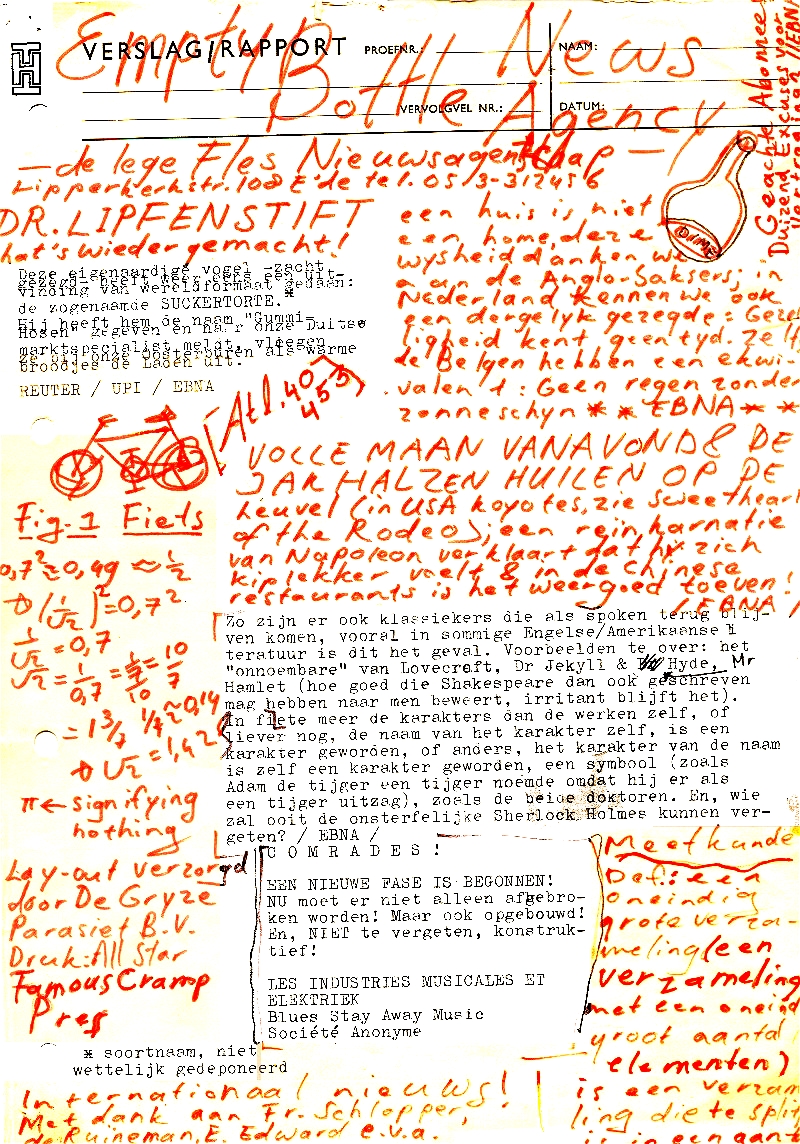 VERSLAG/RAPPORT PROEFNR.: NAAM:
VERVOLGVEL NR.: DATUM:
Empty Bottle News Agency
— de lege Fles Nieuwsagentschap —
Lipperkerkstr. 108 E'de tel. 053-312456
Geachte Abonnee
Duizend Excuses voor
DR. LIPPENSTIFT
hat's wieder gemacht!
Deze eigenaardige vogel -zacht
gezegd- heeft weer eens een uit-
vinding van wereldformaat gedaan:
de zogenaamde SUCKERTORTE.*
Hij heeft hem de naam "Gummi-
Hosen" gegeven en naar onze Duitse
marktspecialist meldt, vliegen
ze bij onze Oosterburen als warme
broodjes de Laden uit.
REUTER / UPI / EBNA
een huis is niet
een home, deze
wysheid danken we
aan de Anglo-Saksers; in
Nederland kennen we ook
een dergelyk gezegde: Geze
ligheid kent geen tyd. Zelf
de Belgen hebben een ekwi-
valent: Geen regen zonder
zonneschyn ** EBNA **
[Atl. 40
453]
Fig. 1 Fiets
VOLLE MAAN VANAVOND & DE
JAKHALZEN HUILEN OP DE
heuvel (in USA koyotes, zie sweetheart
of the Rodeo); een reïnkarnatie
van Napoleon verklaart dat hy zich
kiplekker voelt & in de Chinese
restaurants is het weer goed toeven!
/ EBNA /
0,7² ≈ 0,49 ≈ 1/2
(1/√2)² = 0,7²
1/√2 = 0,7
√2 = 1/0,7 = 1/7/10 = 10/7
= 1 3/7 1/7 ≈ 0,14
√2 = 1,42
π ← signifying
nothing
Zo zijn er ook klassiekers die als spoken terug blij-
ven komen, vooral in sommige Engelse/Amerikaanse li
teratuur is dit het geval. Voorbeelden te over: het
"onnoembare" van Lovecraft, Dr Jekyll & Hyde, Mr
Hamlet (hoe goed die Shakespeare dan ook geschreven
mag hebben naar men beweert, irritant blijft het).
In fiete meer de karakters dan de werken zelf, of
liever nog, de naam van het karakter zelf, is een
karakter geworden, of anders, het karakter van de naam
is zelf een karakter geworden, een symbool (zoals
Adam de tijger een tijger noemde omdat hij er als
een tijger uitzag), zoals de beide doktoren. En, wie
zal ooit de onsterfelijke Sherlock Holmes kunnen ver-
geten? / EBNA /
Lay-out verzorgd
door De Gryze
Parasiet B.V.
Druk: All Star
Famous Cramp
Pres
COMRADES!
EEN NIEUWE FASE IS BEGONNEN!
NU moet er niet alleen afgebro-
ken worden! Maar ook opgebouwd!
En, NIET te vergeten, konstruk-
tief!
LES INDUSTRIES MUSICALES ET
ELEKTRIEK
Blues Stay Away Music
Société Anonyme
Meetkunde
Def.: een
oneindig
grote verza-
meling (een
verzameling
met een oneind
groot aantal
elementen)
is een verzam
ling die te split
* soortnaam, niet
wettelijk gedeponeerd
Internationaal nieuws!
Met dank aan Fr. Schlopper,
de Ruineman, E. Edward e.v.a.